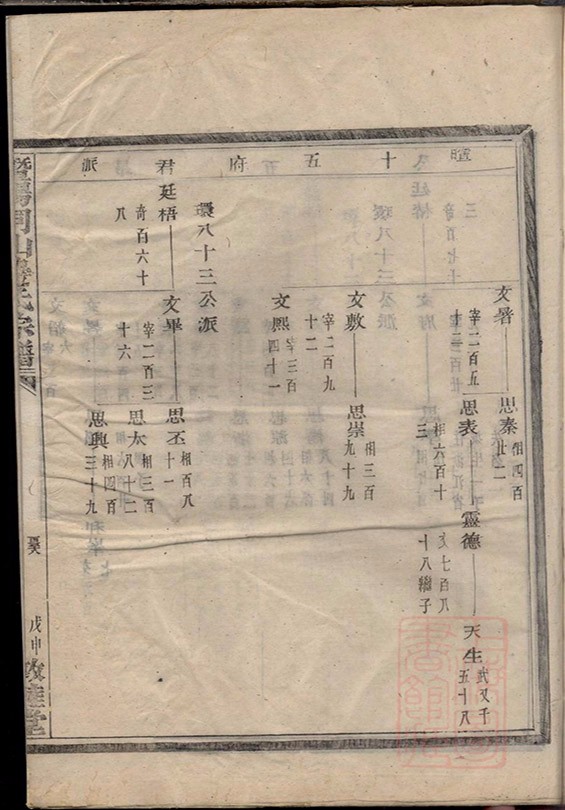 暄十五府君派
文暑
宰二百五
十二
思秦
相四百
廿二
思表
相六百十
三
靈德
文七百八
十八繼子
天生
武又千
五十八
文敷
宰二百九
十二
思崇
相三百
九十九
文熙
宰三百
四十一
環八十三公派
廷梧
奇百六十
八
文畢
宰二百三
十六
思丕
相百八
十一
思太
相三百
八十二
思興
相四百
三十九
宗譜
戊申
堂